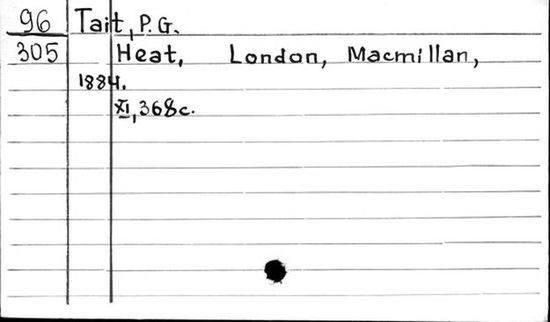 96 Tait, P.G.
305 Heat, London, Macmillan,
1884.
XI, 368c.